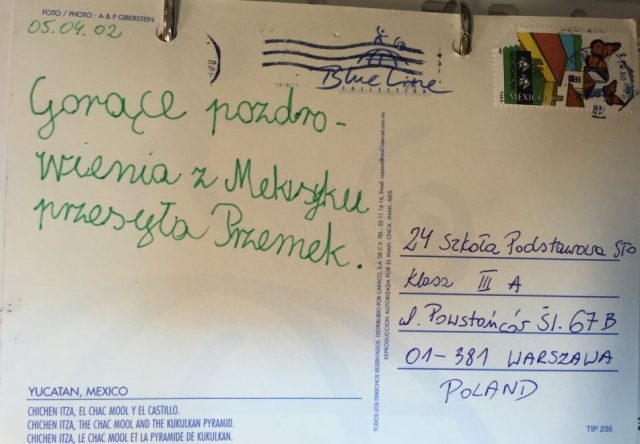 FOTO / PHOTO : A & P GIBERSTEIN
05.04.02
Blue Line
COLLECTION
MEXICO
Gorące pozdro-
wienia z Meksyku
przesyła Przemek.
24 Szkoła Podstawowa STO
Klasa III A
ul. Powstańców Śl. 67B
01-381 WARSZAWA
POLAND
YUCATAN, MEXICO
CHICHEN ITZA, EL CHAC MOOL Y EL CASTILLO.
CHICHEN ITZA, THE CHAC MOOL AND THE KUKULKAN PYRAMID.
CHICHEN ITZA, LE CHAC MOOL ET LA PYRAMIDE DE KUKULKAN.
TODOS LOS DERECHOS RESERVADOS. DISTRIBUIDO POR CAPACO, S.A. DE C.V. TEL.
REPRODUCCION AUTORIZADA POR EL INAH. CNCA.-INAH.-MEX.
TIP 235